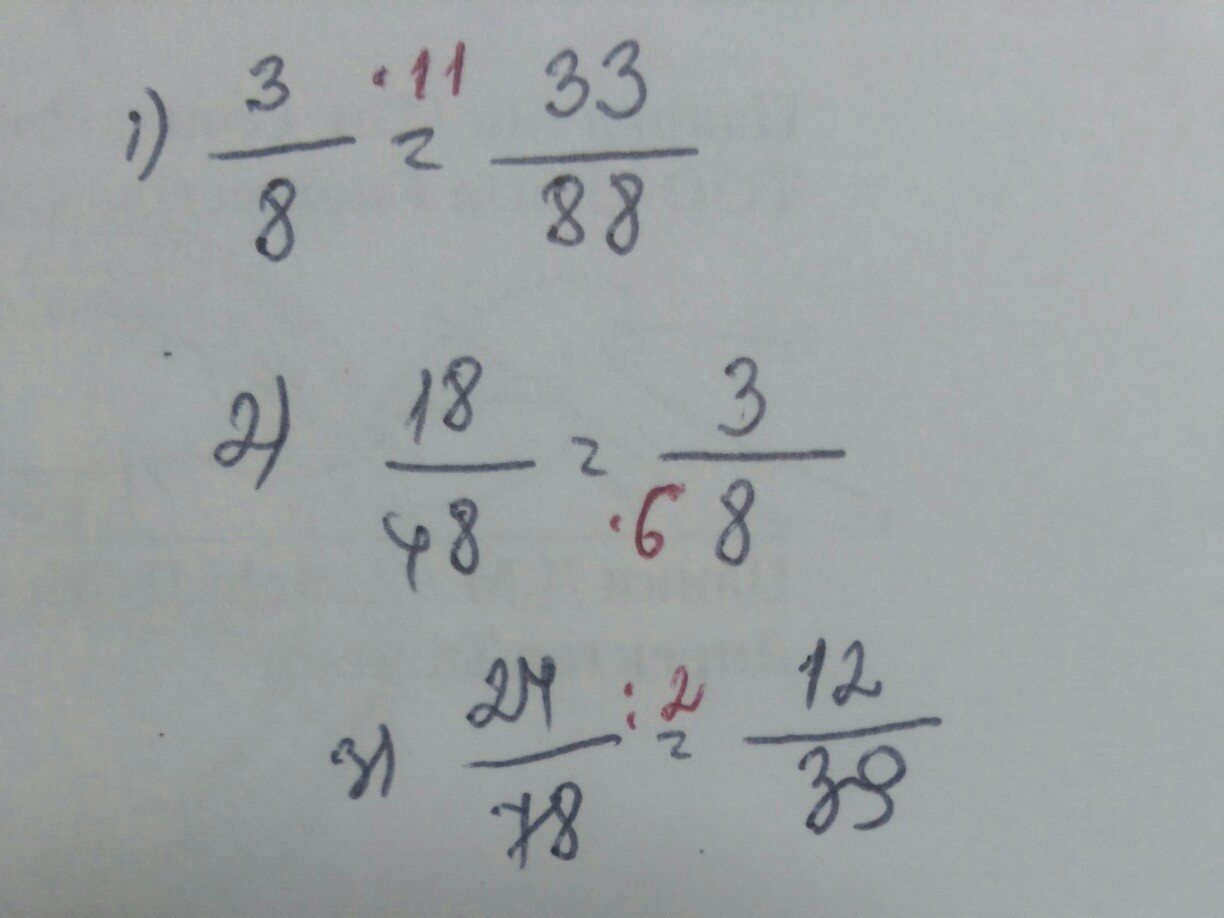 1) 3/8 ·11 = 33/88
2) 18/48 = ·6 3/8
3) 24/78 :2 = 12/39